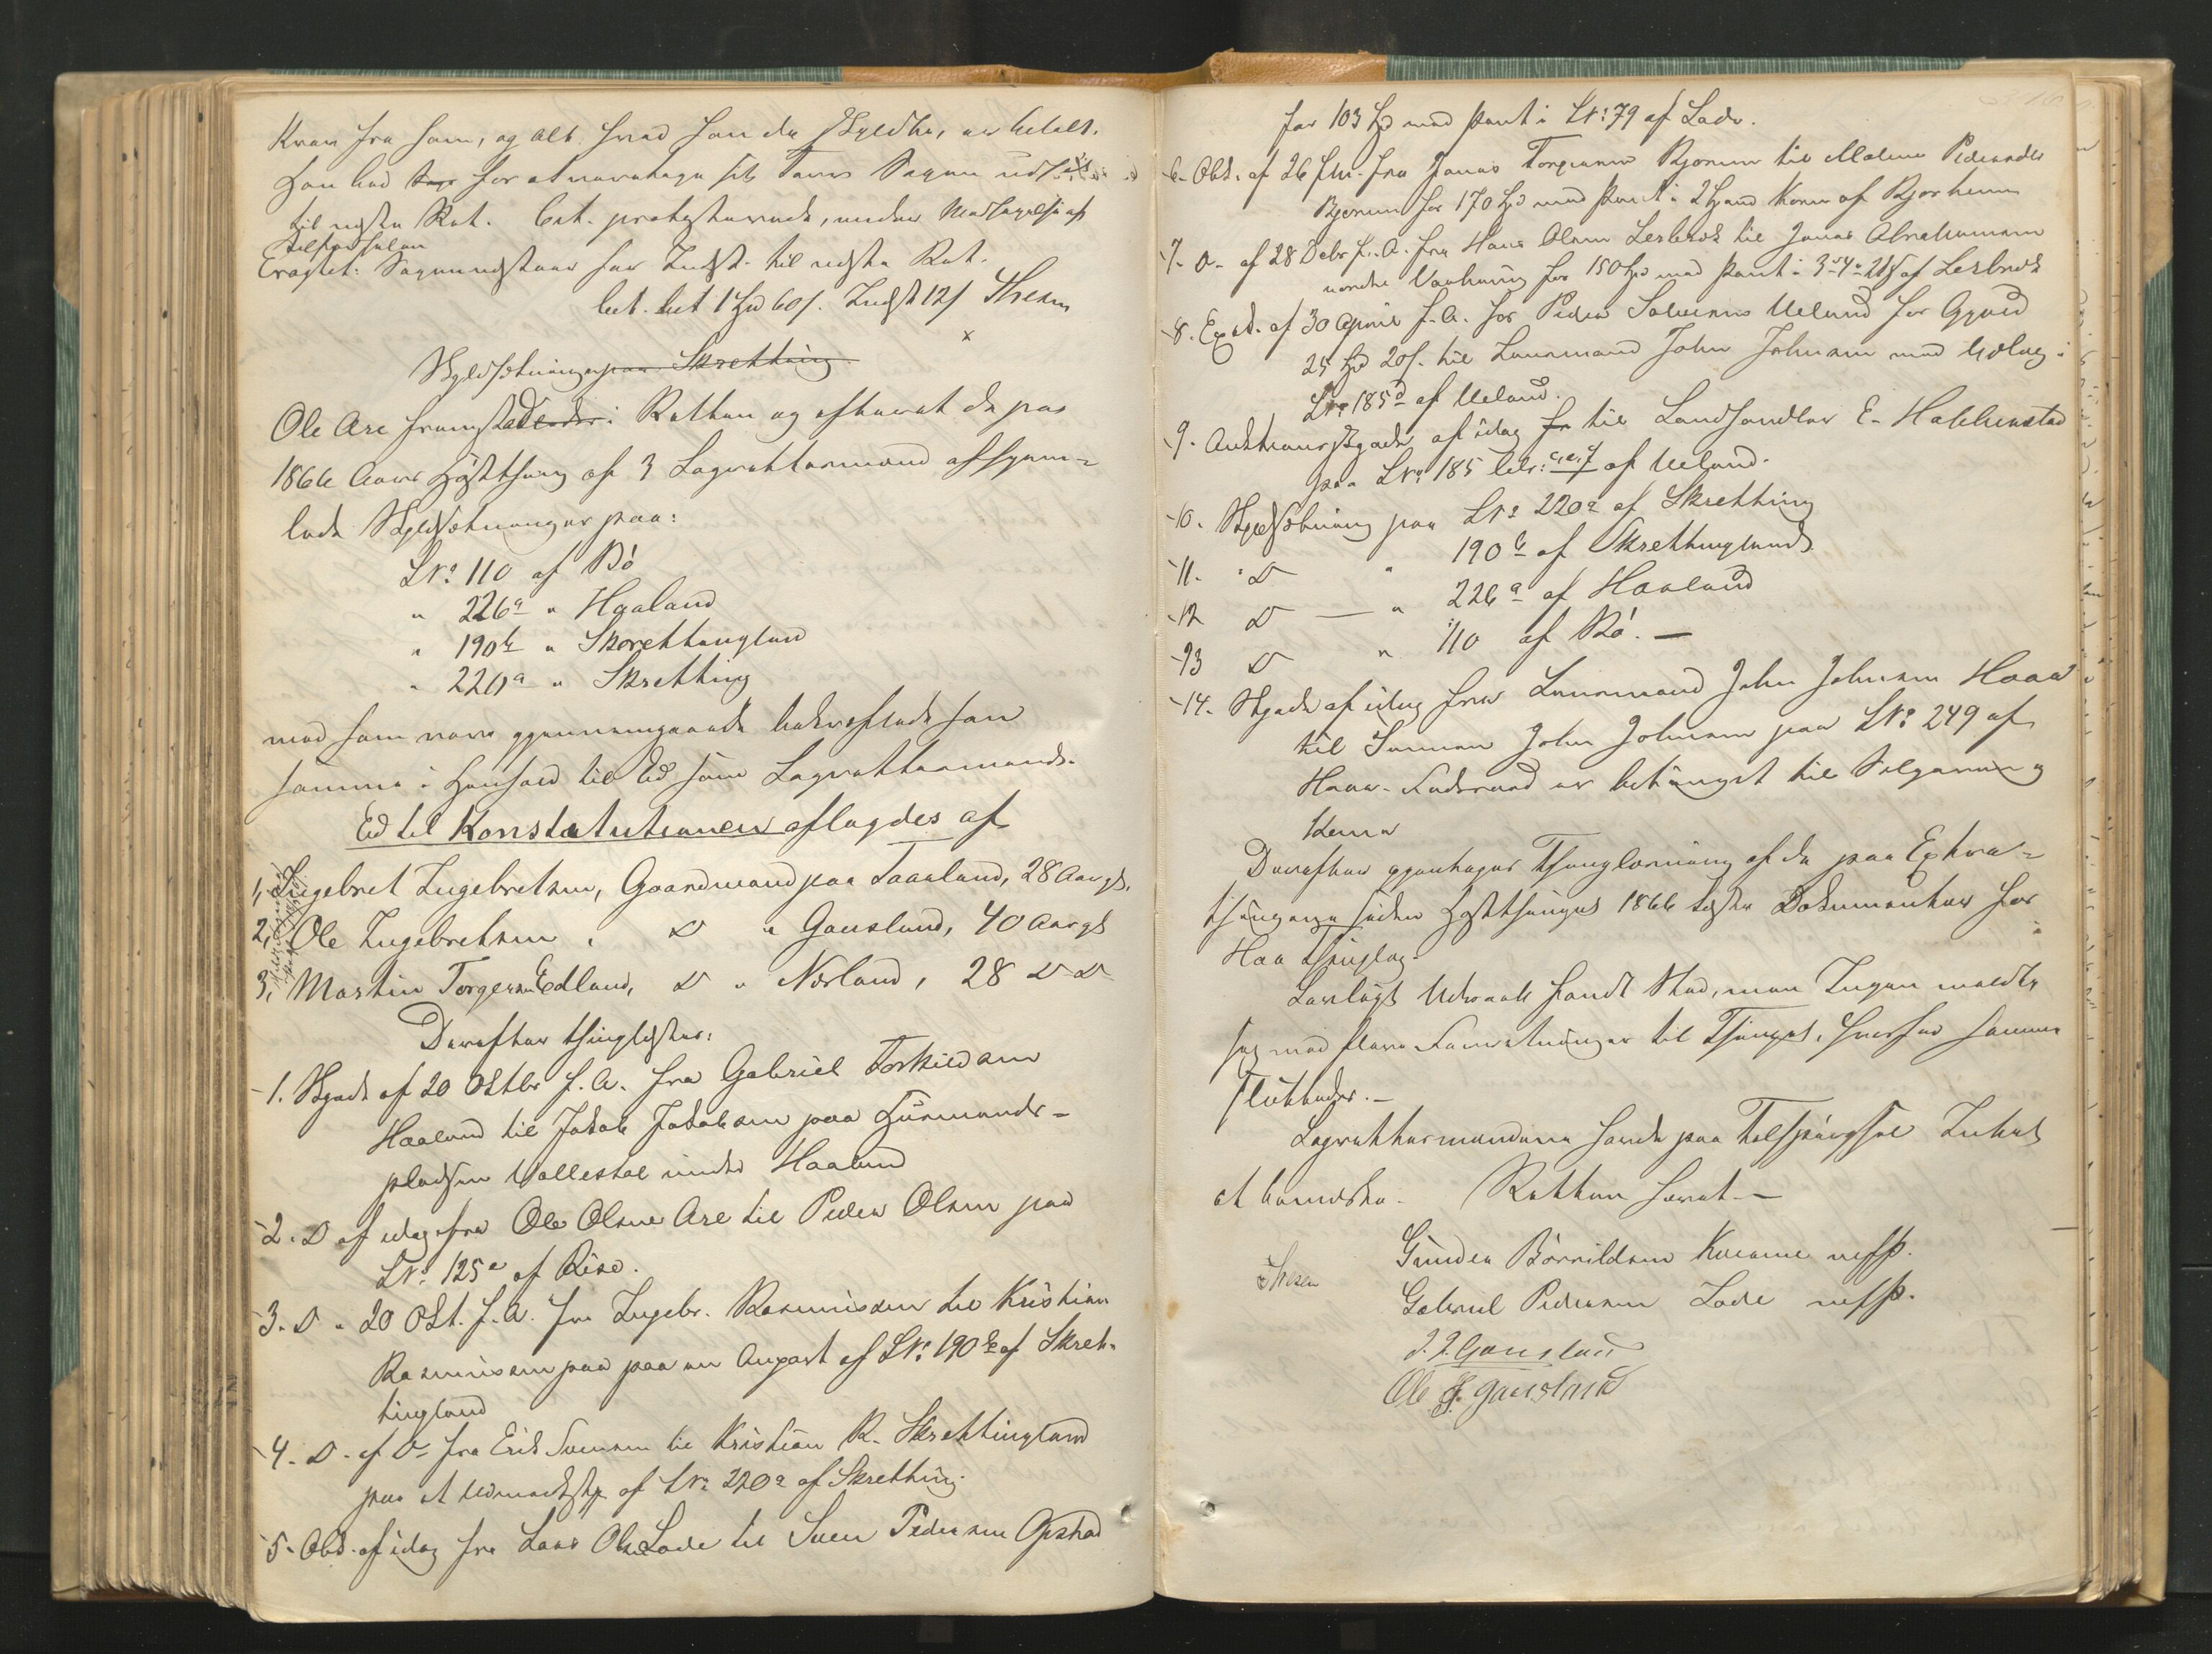 Krav fra ham, og alt hvad han da skyldte, er betalt.
Han bad for at varetage sit Tarv Sagen udsat
til næste Ret. Cit. protesterede, under Modsigelse af
Tilførselen
Eragtet: Sagen udstaar for Indst. til næste Ret.
bet. Cit 1 Spd 60 s. Indst 12 s
x
Skyldsætninger paa Skretting
Ole Are fremstod i Retten og efterat de paa
1866 Aars Høstthing af 3 Lagrettesmænd afhjem=
lede Skyldsætninger paa:
LNo 110 af Bø
" 226a " Haaland
" 190b " Skrettingland
" 220a " Skretting
med ham vare gjennemgaaede bekræftede han
samme i Henhold til Ed som Lagrettesmand.
Ed til Konstitutionen aflagdes af
1, Ingebret Ingebretsen, Gaardmand paa Taarland, 28 Aar gl.
2, Ole Ingebretsen, D " Gausland, 40 Aar gl
3, Martin Torgersen Edland, D " Nærland, 28 D D
Derefter thinglæstes:
1. Skjøde af 20 Oktbr f. A. fra Gabriel Torkildsen
Haaland til Jakob Jakobsen paa Huusmands-
pladsen Vollestal under Haaland
2. D af idag fra Ole Olsen Are til Peder Olsen paa
LNo 125a af Rise.
3. D " 20 Okt. f. A. fra Ingebr. Rasmussen til Kristian
Rasmussen paa paa en Anpart af LNo 190b af Skret-
tingland
4. D. af D fra Erik Svensen til Kristian R. Skrettingland
paa et Udmarkstk af LNo 220a af Skretting.
5. Obl. af idag fra Lars Olsen Lode til Sven Pedersen Opstad
for 103 Spd med Pant i LNo 79 af Lode.
6. Obl. af 26 fra Jonas Torgersen Bjorum til Malene Pedersdtr
Bjorum for 170 Spd med Pant i 2 Spand Korn af Bjorheim
7. D. af 28 Debr f. A. fra Hans Olsen Lerbrek til Jonas Abrahamsen
nordre Varhaug for 150 Spd med Pant i af Lerbrek
8. Exad. af 30 April f. A. hos Peder Salvesen Ueland for Gjæld
25 Spd 20 s. til Lensmand John Johnsen med Udlæg i
LNo 185d af Ueland.
9. Auktionsskjøde af idag til Landhandler E. Habberstad
paa LNo 185 litr: c, e, f af Ueland.
10. Skyldsætning paa LNo 220a af Skretting
11. D " 190b af Skrettingland
12 D — " 226a af Haaland
13 D " 110 af Bø. —
14. Skjøde af idag fra Lensmand John Johnsen Haaa
til Sønnen John Johnsen paa LNo 249 af
Haaa. Føderaad er betinget til Sælgeren og
Kone
Derefter gjentoges Thinglæsning af de paa Extra=
thingene siden Høstthinget 1866 læste Dokumenter for
Haa Thinglag.
Lovligt Udraab fandt Sted, men Ingen meldte
sig med flere Forretninger til Thinget, hvorfor samme
sluttedes. —
Lagrettesmændene havde paa Tilspørgsel Intet
at bemærke. Retten hævet. —
Gunder Børrildsen Kvame mfP.
Gabriel Pedersen Lode mfP.
J. J. Gausland
Ole J. Gausland